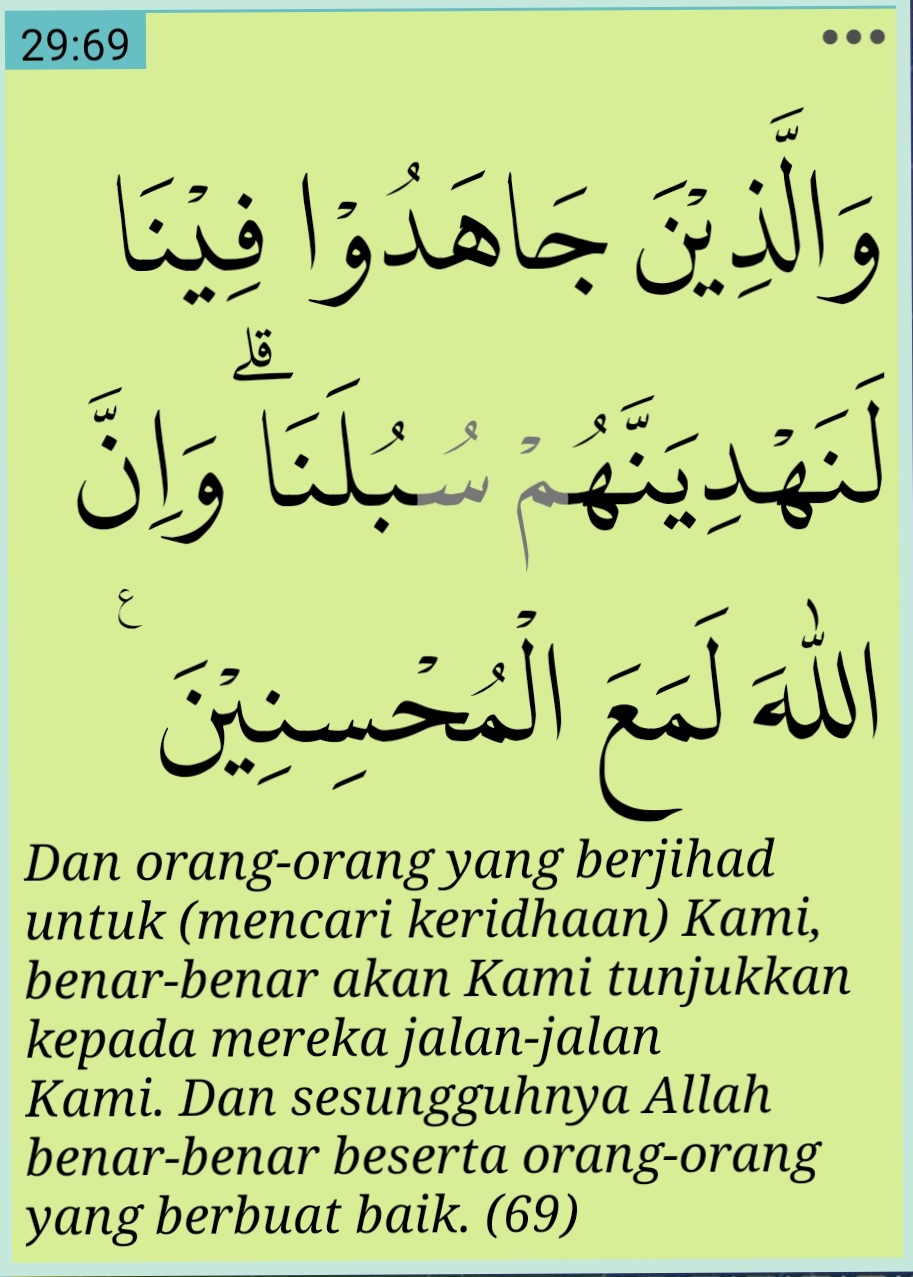 29:69
وَالَّذِيْنَ جَاهَدُوْا فِيْنَا
لَنَهْدِيَنَّهُمْ سُبُلَنَا ۗ وَاِنَّ
اللّٰهَ لَمَعَ الْمُحْسِنِيْنَ ع
Dan orang-orang yang berjihad
untuk (mencari keridhaan) Kami,
benar-benar akan Kami tunjukkan
kepada mereka jalan-jalan
Kami. Dan sesungguhnya Allah
benar-benar beserta orang-orang
yang berbuat baik. (69)